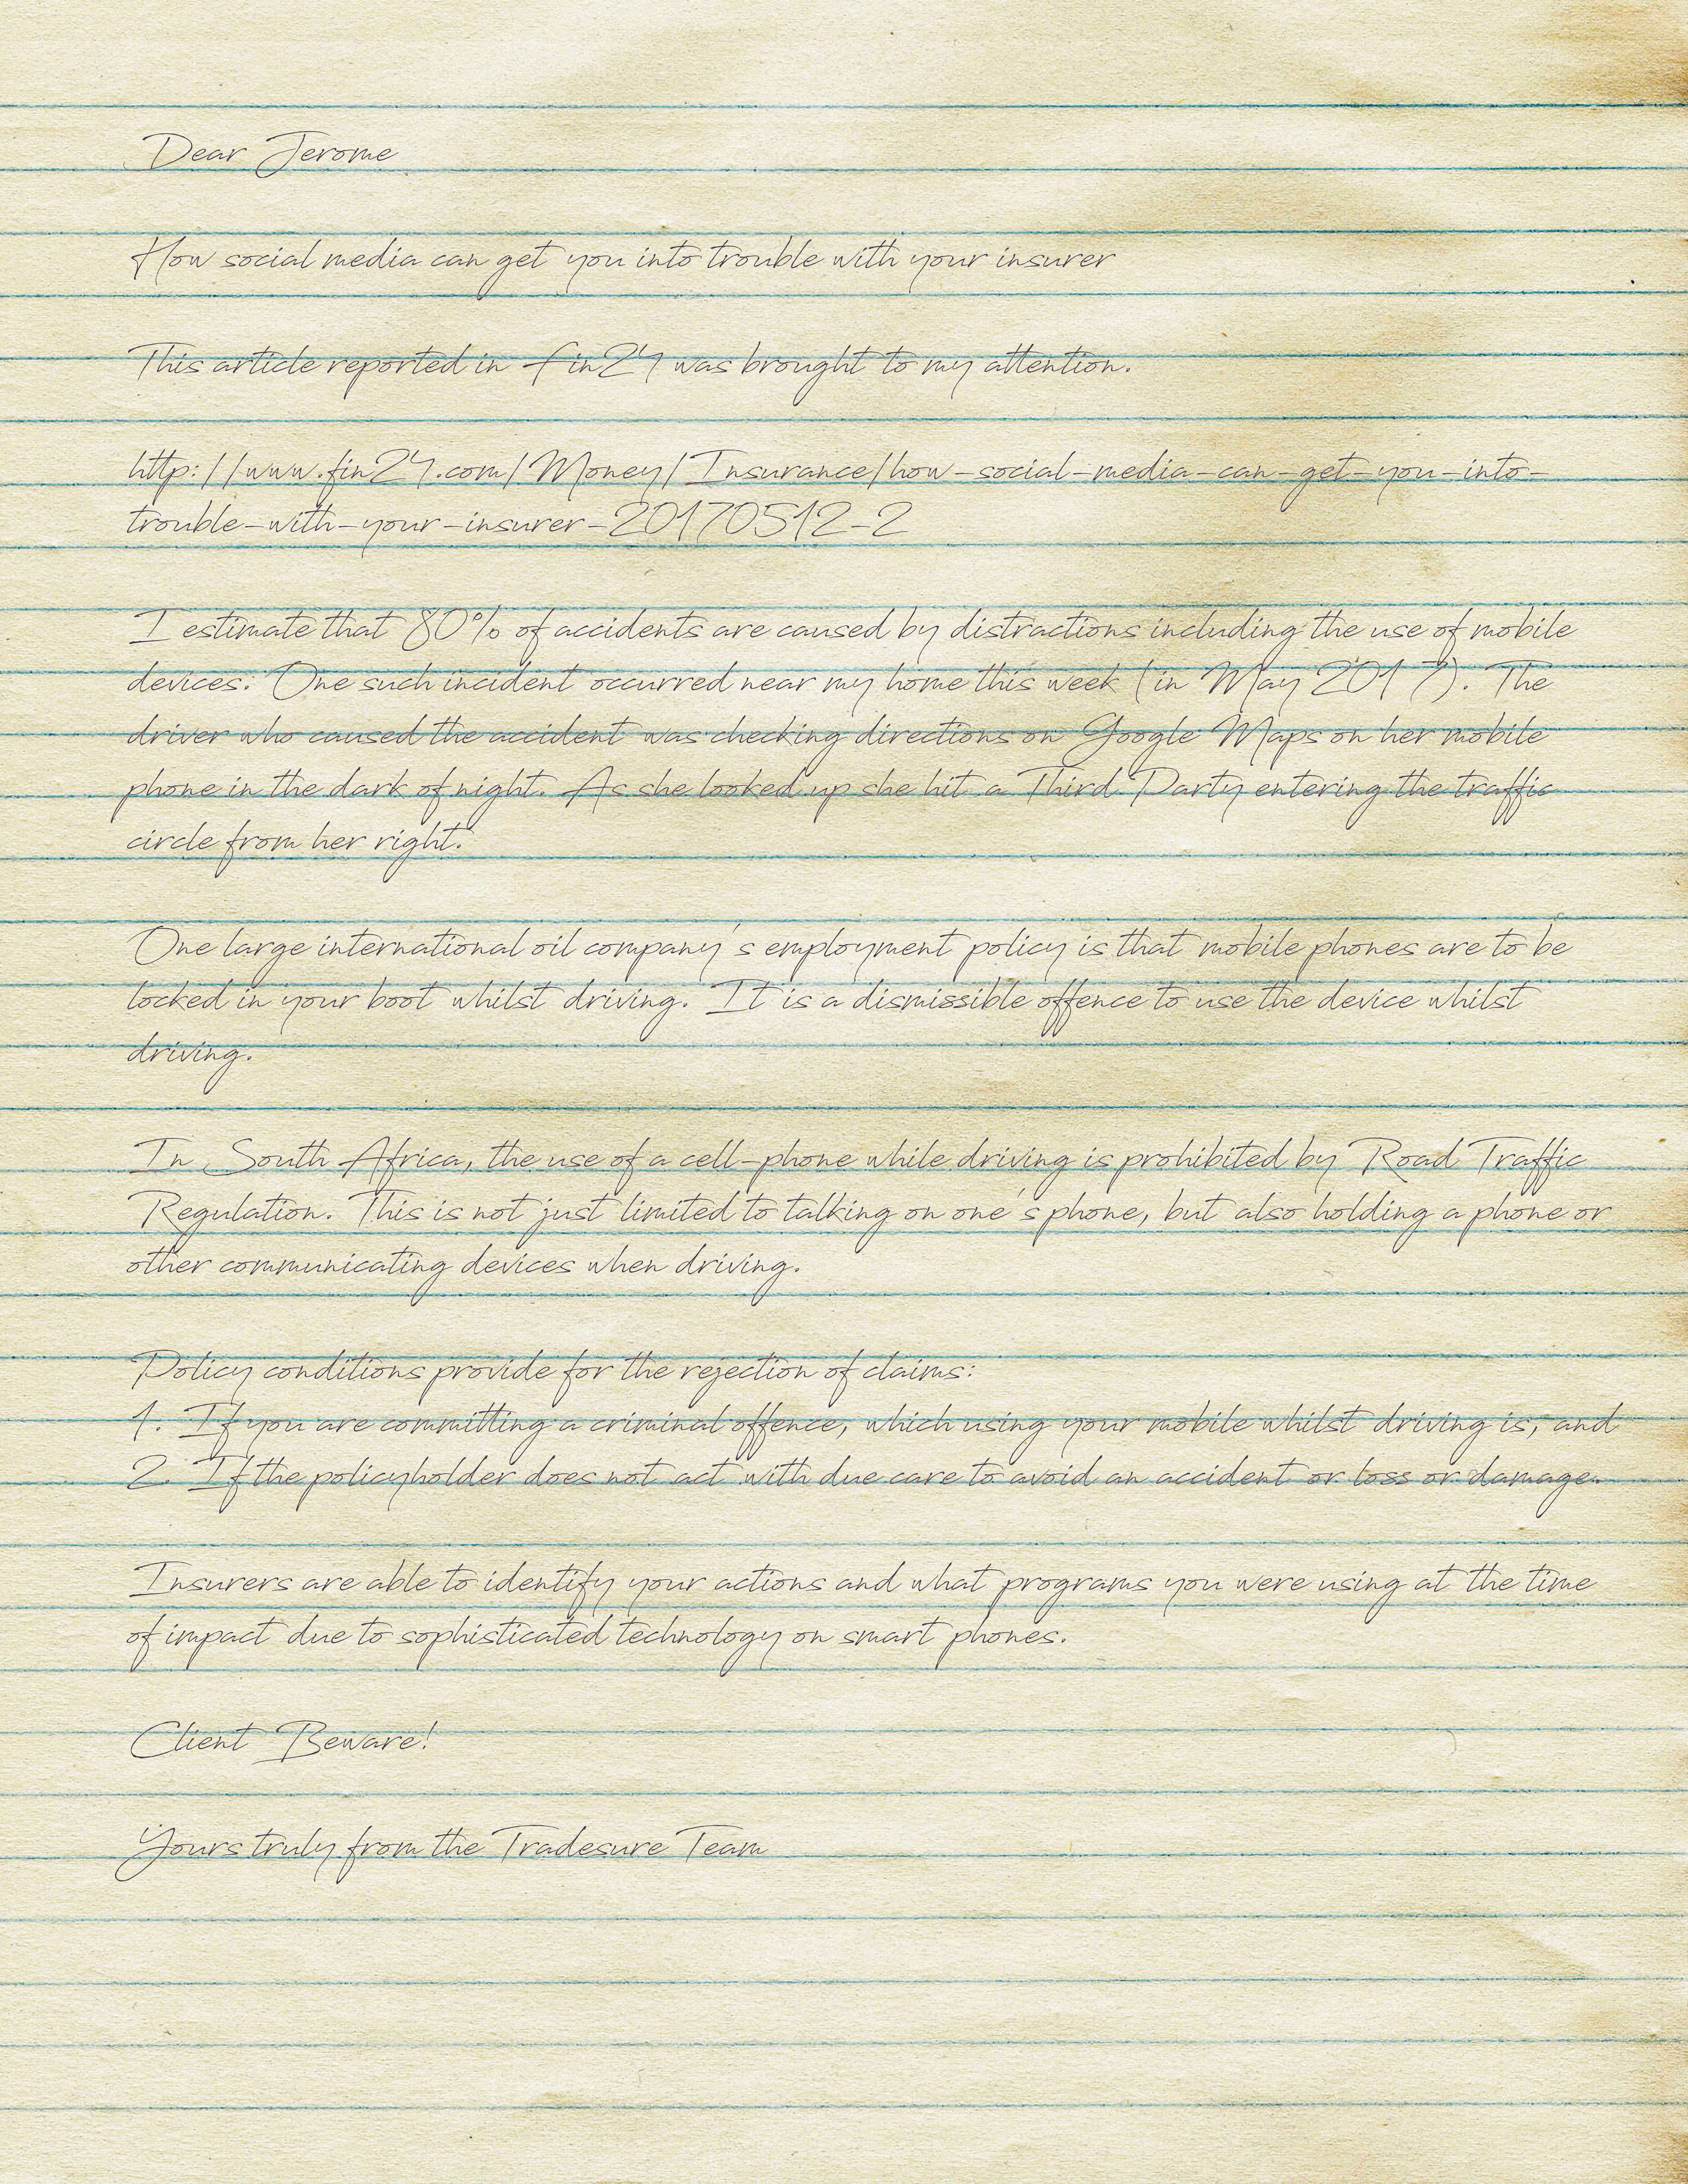 Dear Jerome
How social media can get you into trouble with your insurer
This article reported in fin24 was brought to my attention.
http://www.fin24.com/Money/Insurance/how-social-media-can-get-you-into-
trouble-with-your-insurer-20170512-2
I estimate that 80% of accidents are caused by distractions including the use of mobile
devices. One such incident occurred near my home this week (in May 2017). The
driver who caused the accident was checking directions on Google Maps on her mobile
phone in the dark of night. As she looked up she hit a Third Party entering the traffic
circle from her right.
One large international oil company's employment policy is that mobile phones are to be
locked in your boot whilst driving. It is a dismissible offence to use the device whilst
driving.
In South Africa, the use of a cell-phone while driving is prohibited by Road Traffic
Regulation. This is not just limited to talking on one's phone, but also holding a phone or
other communicating devices when driving.
Policy conditions provide for the rejection of claims:
1. If you are committing a criminal offence, which using your mobile whilst driving is, and
2. If the policyholder does not act with due care to avoid an accident or loss or damage.
Insurers are able to identify your actions and what programs you were using at the time
of impact due to sophisticated technology on smart phones.
Client Beware!
Yours truly from the Tradesure Team